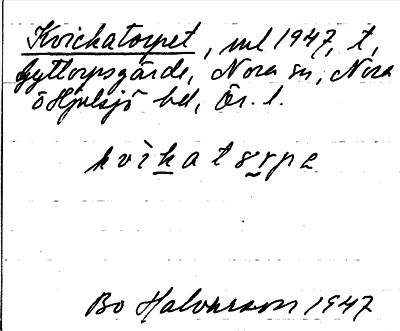 Kvickatorpet, ml 1947, t,
Gyttorpsgårde, Nora sn, Nora
o Hjulsjö bd, Ör. l.
kvìkatɞrpe
Bo Halvarsson 1947